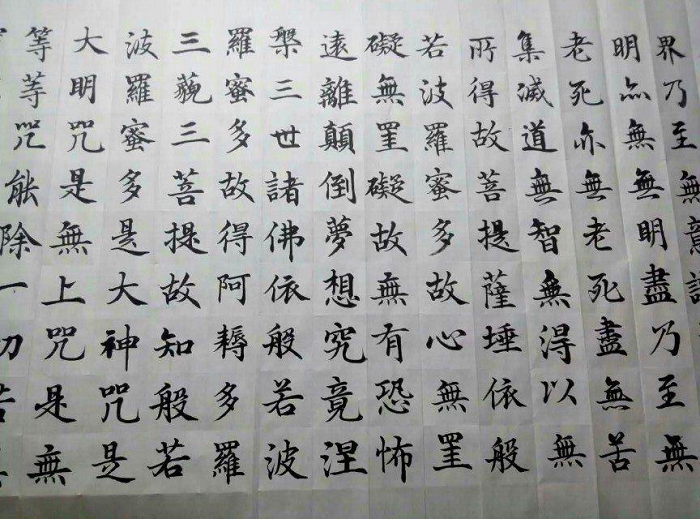 界乃至無意
明亦無無明盡乃至無
老死亦無老死盡無苦
集滅道無智無得以無
所得故菩提薩埵依般
若波羅蜜多故心無罣
礙無罣礙故無有恐怖
遠離顛倒夢想究竟涅
槃三世諸佛依般若波
羅蜜多故得阿耨多羅
三藐三菩提故知般若
波羅蜜多是大神咒是
大明咒是無上咒是無
等等咒能除一切苦